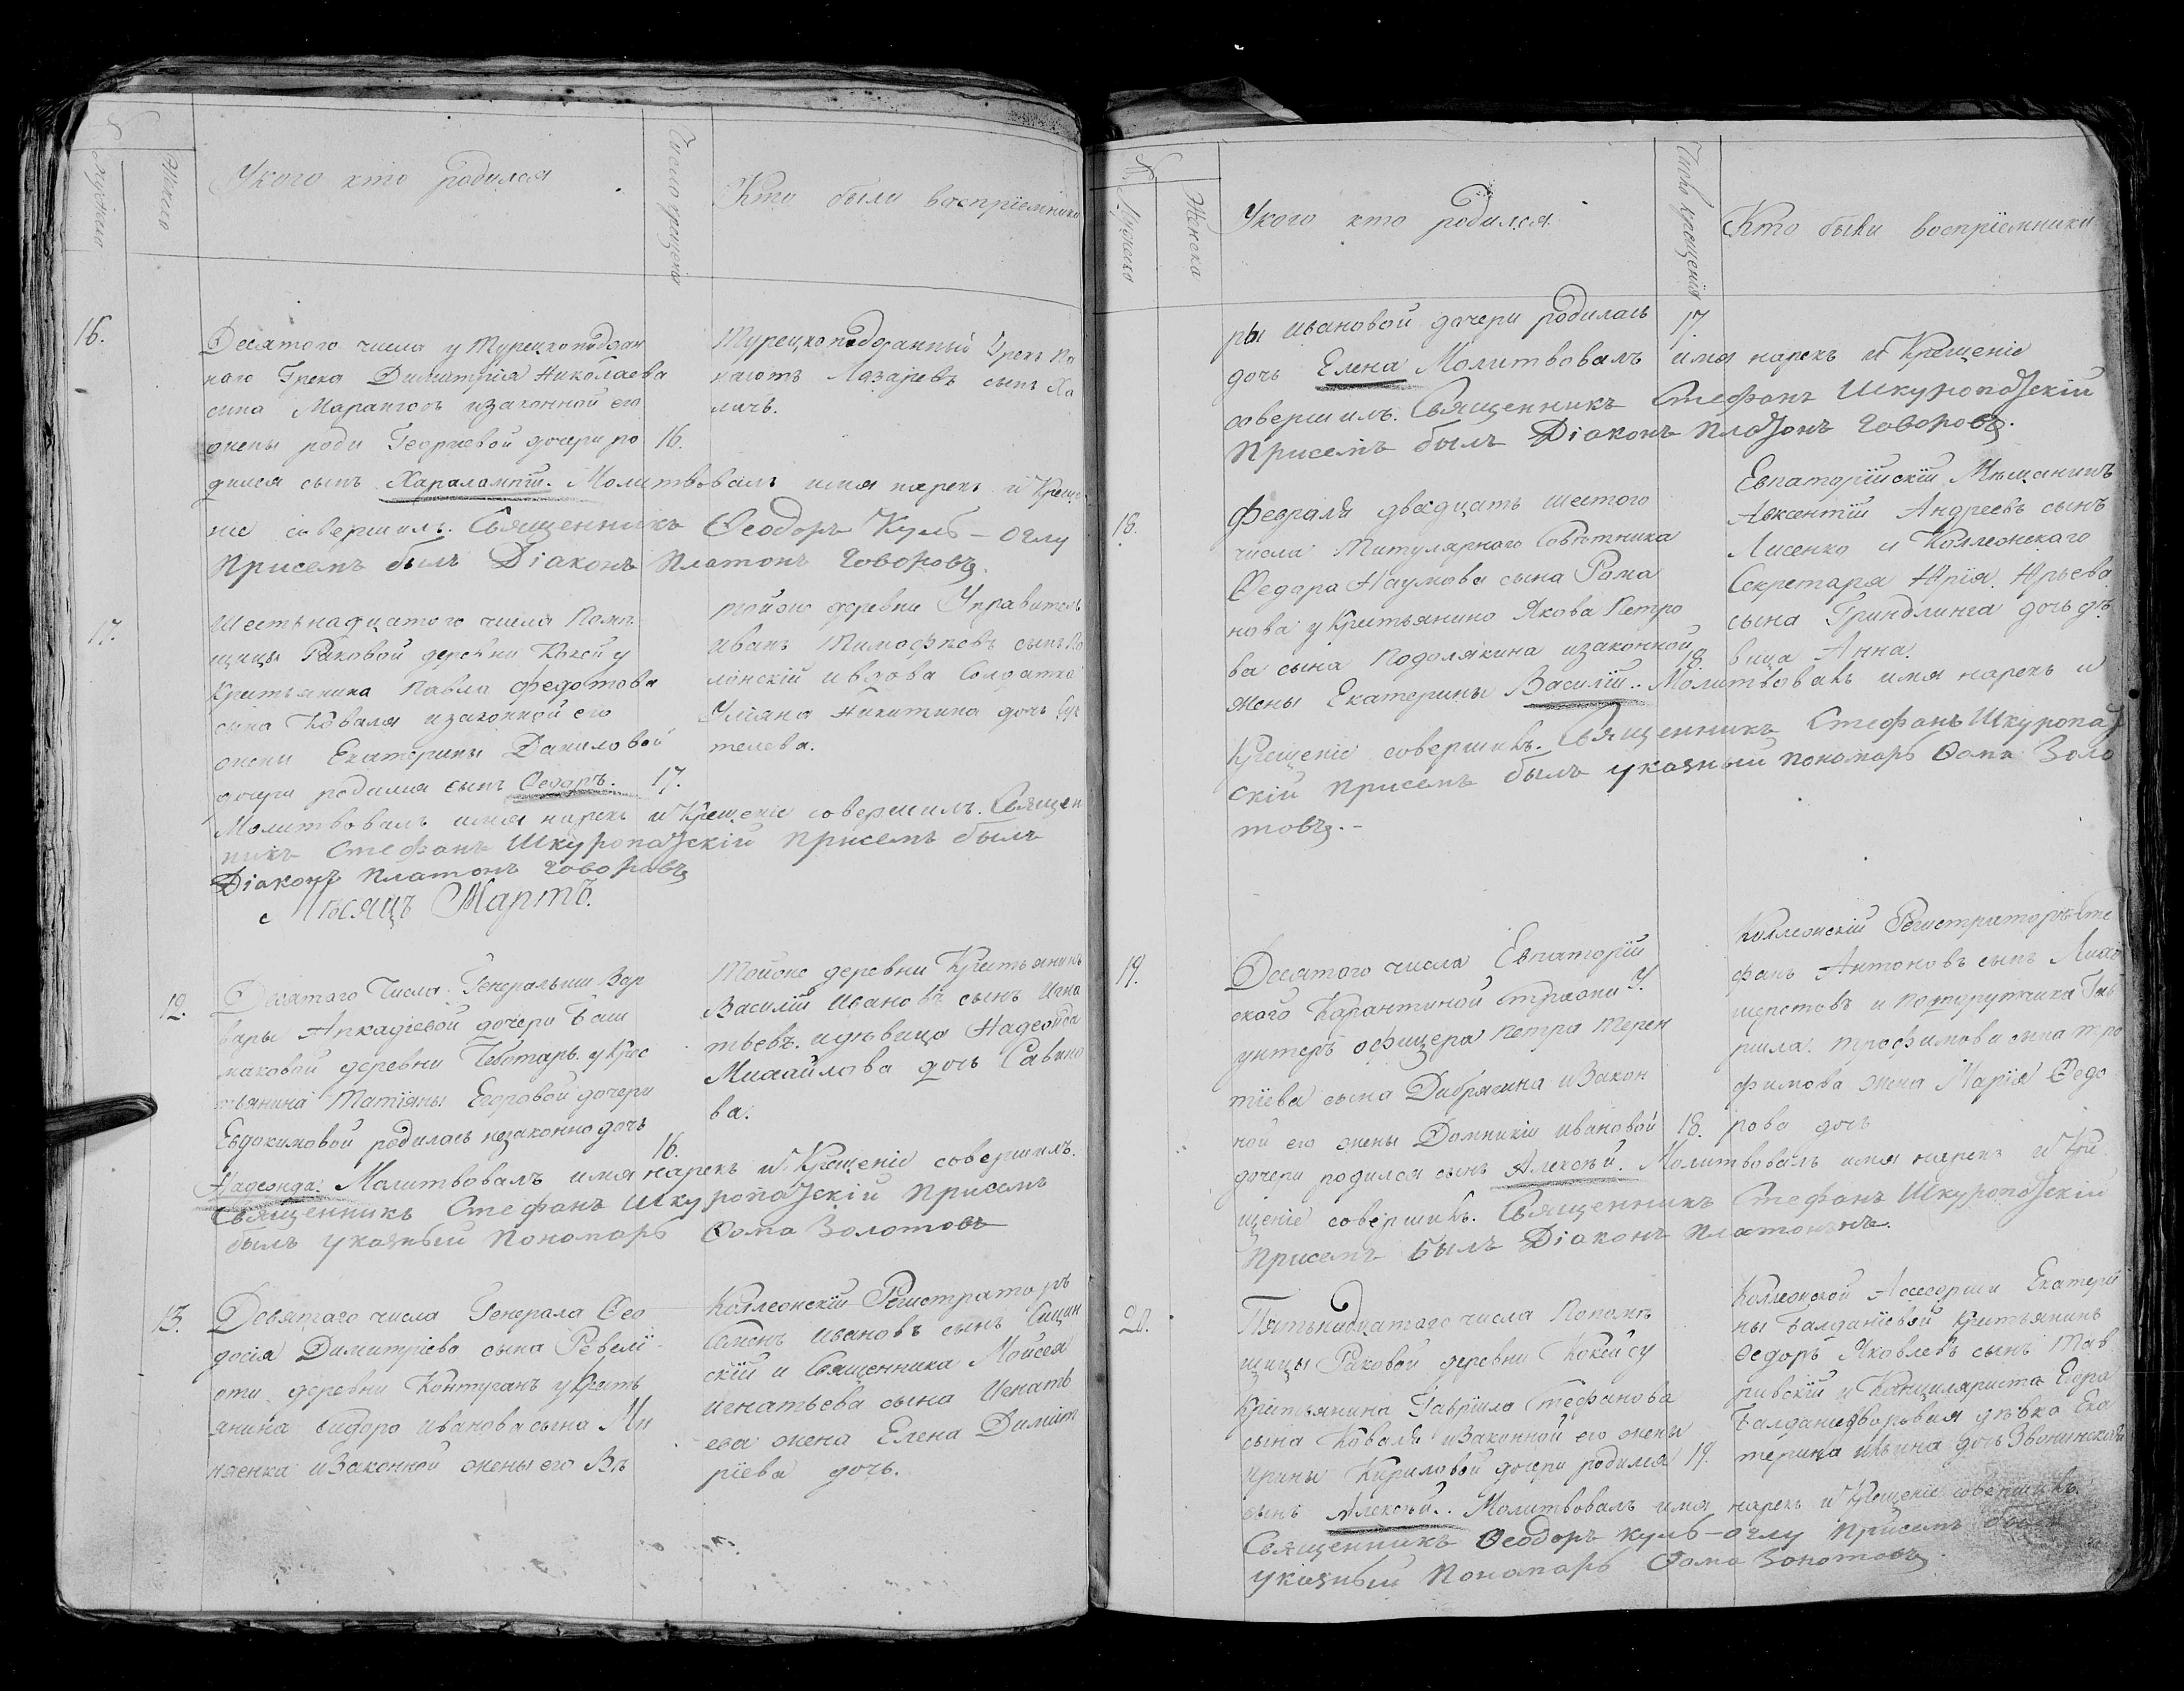 №
Мужеско
Женско
У кого кто родился
Число крещенія
Кто были воспріемники
16.
Десятого числа у Турецкоподдан
наго Грека Димитрія Николаева
сына Марангозъ изаконной его
жены Георгіевой дочери ро
16.
дился сынъ Харалампій. Молитвовалъ имя нарекъ и Креще
ніе совершилъ. Священникъ Ѳеодоръ Кулб-оглу
Присемъ былъ Діаконъ Платонъ Говоровъ.
Турецкоподданный Грекъ Па
наіотъ Лазаревъ сынъ Ха
личъ.
17.
Шестьнадцатого числа Помѣ
щицы Раковой деревни Коксй у
Крѣстьянина Павла Федотова
сына Коваля изаконной его
жены Екатерины Даниловой
дочери родился сынъ Ѳедоръ.
17.
Молитвовалъ имя нарекъ и Крещеніе совершилъ. Священ
никъ Стефанъ Шкуропадскій Присемъ былъ
Діаконъ Платонъ Говоровъ
тойже деревни Управитель
Иванъ Тимофѣевъ сынъ По
лонскій ивдова Солдатка
Уліяна Никитина дочь
телева.
Мѣсяцъ Мартъ.
12.
Десятого Числа Генеральши Вар
вары Аркадіевой дочери Баш
маковой деревни Чеботарь у Крес
тьянина Татіяны Егоровой дочери
Евдокимовой родилась незаконно дочь
16.
Надежда. Молитвовалъ имя нарекъ и Крещеніе совершилъ.
Священникъ Стефанъ Шкуропадскій Присемъ
былъ указный Пономарь Ѳома Золотовъ
Тойже деревни Крѣстьянинъ
Василій Ивановъ сынъ Игна
тьевъ. идѣвица Надежда
Михайлова дочь Савино
ва.
13.
Девятаго числа Генерала Ѳео
досія Димитріева сына Ревелі
оти деревни Контуганъ у Крѣсть
янина Сидора Иванова сына Ми
ияенка изаконной жены его Вѣ
Коллежскій Регистраторъ
Семенъ Ивановъ сынъ Сицин
скій и Священника Мойсея
Игнатьева сына Игнать
ева жена Елена Димит
ріева дочь.
№
Мужеско
Женска
У кого кто родился
Число крещенія
Кто были воспріемники
ры Ивановой дочери родилась
17.
дочь Елена Молитвовалъ имя нарекъ и Крещеніе
совершилъ. Священникъ Стефанъ Шкуропадскій
Присемъ былъ Діаконъ Платонъ Говоровъ.
18.
Февраля двадцать шестого
числа Титулярнаго Совѣтника
Федора Наумова сына Рама
нова у Крѣстьянино Якова Петро
ва сына Подолякина изаконной
18.
жены Екатерины Василій. Молитвовалъ имя нарекъ и
Крещеніе совершилъ. Священникъ Стефанъ Шкуропад
скій Присемъ былъ указный пономарь Ѳома Золо
товъ.
Евпаторійскій Мѣщанинъ
Авксентій Андреевъ сынъ
Лисенко и Коллежскаго
Секретаря Юрія Юрьева
сына Гриндлинга дочь дѣ
вица Анна.
19.
Десятого числа Евпаторій
ского Карантиной стражи У.
унтеръ офицера Петра Терен
тіева сына Дибрягина иЗакон
ной его жены Домникіи Ивановой
18.
дочери родился сынъ Алексѣй. Молитвовалъ имя нарекъ и Кре
щеніе совершилъ. Священникъ Стефанъ Шкуропадскій
Присемъ былъ Діаконъ Платонъ
Коллежскій Регистраторъ Сте
фанъ Антоновъ сынъ
шерстовъ и подпорутчика Гав
рила Трофимова сына Тро
фимова жена Марія Ѳедо
рова дочь
20.
Пятьнадцатого числа Помѣ
щицы Раковой деревни Коксй у
Крѣстьянина Гавріила Стефанова
сына Коваля изаконной его жены
Ирины Кириловой дочери родился
19.
сынъ Алексѣй. Молитвовалъ имя нарекъ и Крещеніе совершилъ.
Священникъ Ѳеодоръ Кулб-оглу Присемъ былъ
указный Пономарь Ѳома Золотовъ.
Коллежской Асесорши Екатери
ны Балданіевой Крѣстьянинъ
Ѳедоръ Яковлевъ сынъ Тав
ривскій и Канцеляриста Егора
Балдани дворовая дѣвка Ека
терина Ильина дочь Звонинская